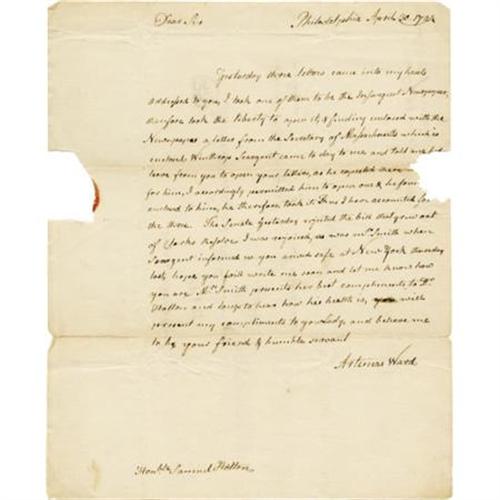 Dear Sir Philadelphia April 30 1794
Yesterday three letters came into my hands
addressed to you, I took one of them to be the Newspaper,
therefore took the liberty to open it, & finding enclosed with the
Newspaper a letter from the Secretary of Massachusetts which is
enclosed Winthrop Seargent came to day to me and told me he had
leave from you to open your letters, as he expected there
for him, I accordingly permitted him to open one & he found
enclosed to him, he therefore took it Thus I have accounted for
the three. The Senate Yesterday rejected the bill that grew out
of Clarks Resolve I was rejoiced, as was Mrs Smith when
Seargent informed us you arived safe at New York thursday
last, hope you will write me soon and let me know how
you are Mrs Smith presents her best compliments to Dr
Holton and longs to hear how his health is, you will
present my compliments to your Lady and believe me
to be your friend & humble servant
Artemas Ward
Honble Samuel Holton